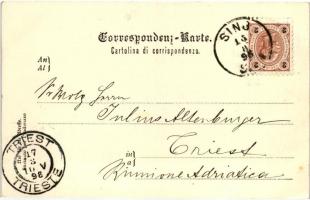 Correspondenz-Karte.
Cartolina di corrispondenza.
SINJ
An
A
Herrn
Julius Altenburger
in
a
Triest
Riunione Adriatica
TRIEST
17
98
TRIESTE